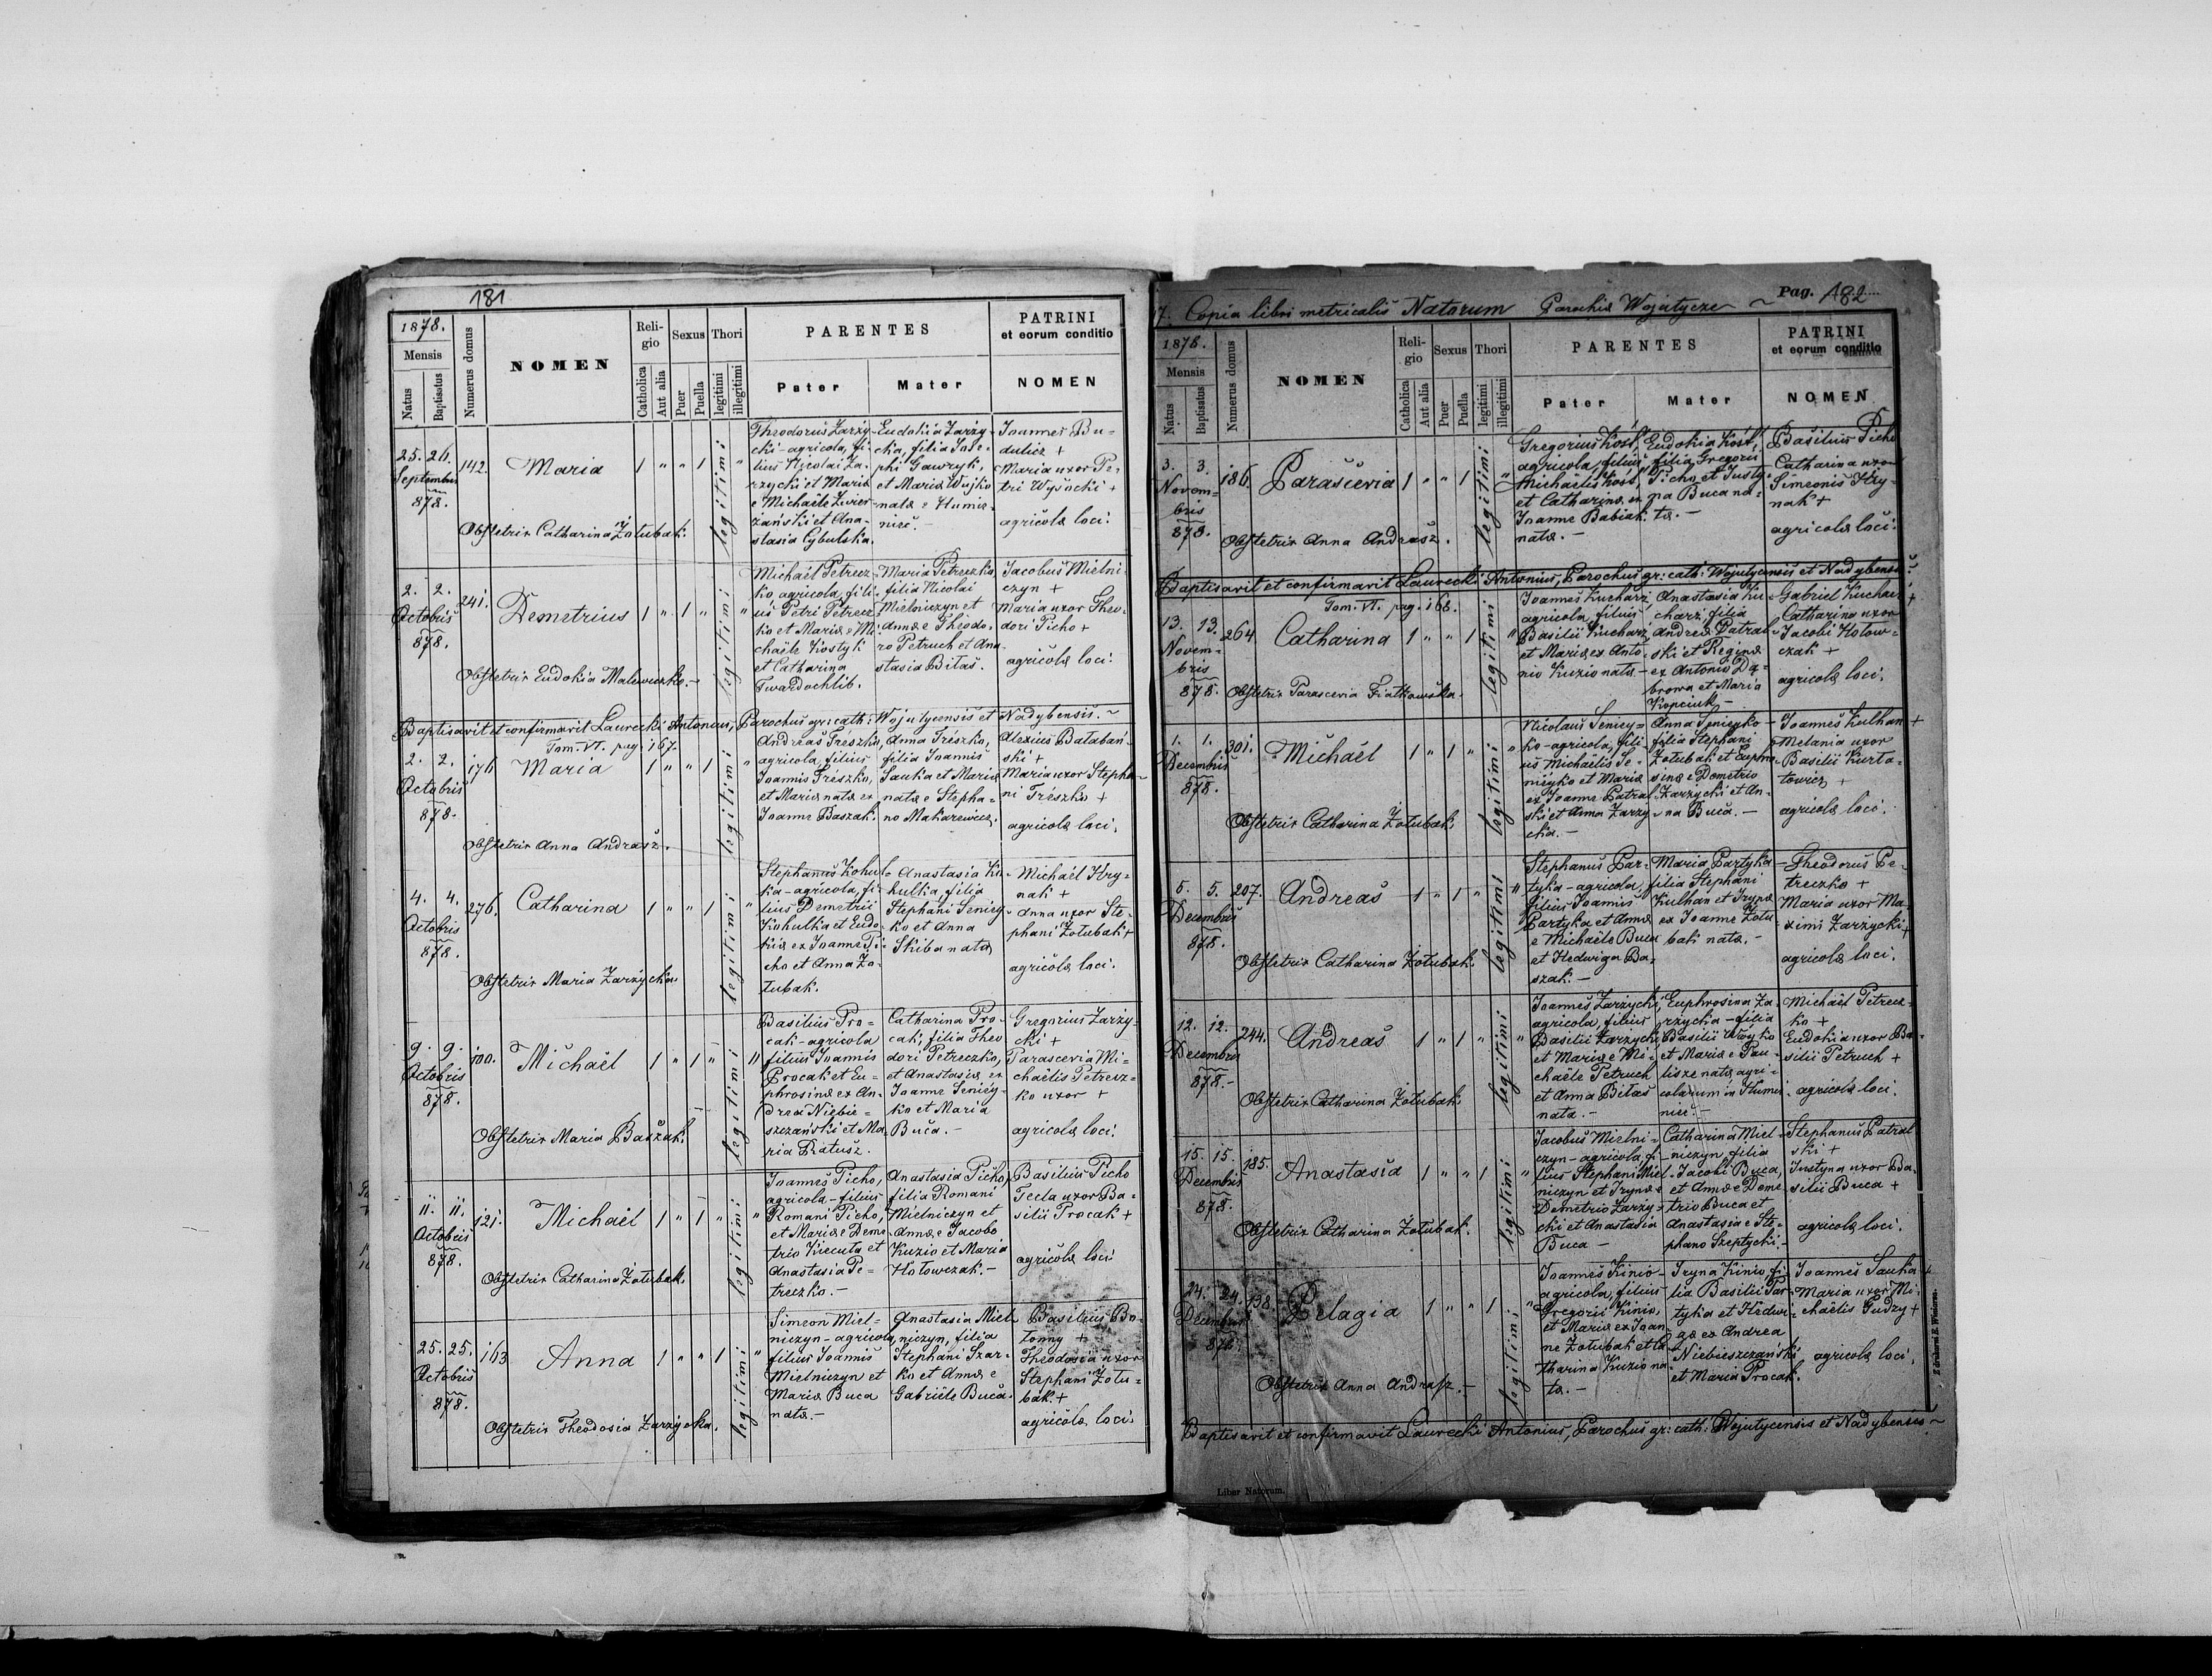 181
1878.
Mensis
Natus
Baptisatus
Numerus domus
NOMEN
Religio
Catholica
Aut alia
Sexus
Puer
Puella
Thori
legitimi
illegitimi
PARENTES
Pater
Mater
PATRINI
et eorum conditio
NOMEN
25. 26.
Septembris
878.
142.
Maria
1 " " 1
legitimi
"
Theodorus Zarzy-
cki - agricola, fi-
lius Nicolai Za-
rzycki et Maria
e Michaele Zwier-
żański et Ana-
stasia Cybulska.
Eudokia Zarzy-
cka, filia Jose-
phi Gawryk,
et Maria Wujko
nata e Humie-
nieč. -
Joannes Bu-
dulicz +
Maria uxor Pe-
tri Wysocki +
agricolæ loci.
Obstetrix Catharina Żołubak.
2. 2.
Octobris
878.
241.
Demetrius
1 " 1 "
legitimi
"
Michaël Petrecz-
ko agricola, fili-
us Petri Petrecz-
ko et Mariæ e Mi-
chaële Kostyk
et Catharina
Twardochlib.
Maria Petreczko,
filia Nicolai
Mielniczyn et
Annæ e Theodo-
ro Petruch et Ana-
stasia Bilas.
Jacobus Mielni-
czyn +
Maria uxor Theo-
dori Picho +
agricolæ loci.
Obstetrix Eudokia Malewiczko. -
Baptisavit et confirmavit Laurecki Antonius, Parochus gr: cath: Wojutycensis et Nadybensis. ~
Tom. VI. pag. 167.
2. 2.
Octobris
878.
176
Maria
1 " " 1
legitimi
"
Andreas Treszko,
agricola, filius
Joannis Treszko,
et Maria nata ex
Joanne Baszak.
Anna Treszko,
filia Joannis
Sauka et Maria
nata e Stepha-
no Makarewicz.
Alexius Bałabań-
ski +
Maria uxor Stepha-
ni Treszko +
agricolæ loci.
Obstetrix Anna Andrasz.
4. 4.
Octobris
878.
276.
Catharina
1 " " 1
legitimi
"
Stephanus Kohul-
ka - agricola, fi-
lius Demetrii
Kohulka et Eudo-
kia ex Joanne Pi-
cho et Anna Żo-
łubak.
Anastasia Ko-
hulka, filia
Stephani Seniey-
ko et Anna
Skiba nata
Michaël Hry-
nak +
Anna uxor Ste-
phani Żołubak +
agricolæ loci.
Obstetrix Maria Zarzycka
9. 9.
Octobris
878.
100.
Michaël
1 " 1 "
legitimi
"
Basilius Pro-
cak - agricola
filius Joannis
Procak et Eu-
phrosina ex An-
drea Niebie-
szczański et Ma-
ria Ratusz.
Catharina Pro-
cak, filia Theo
dori Petreczko,
et Anastasia ex
Joanne Seniey-
ko et Maria
Buca. -
Gregorius Zarzy-
cki +
Parascevia Mi-
chaëlis Petrecz-
ko uxor +
agricolæ loci.
Obstetrix Maria Baszak.
11. 11.
Octobris
878.
121.
Michaël
1 " 1 "
legitimi
"
Joannes Picho,
agricola - filius
Romani Picho,
et Maria e Deme-
trio Kiecuta et
Anastasia Pe-
treczko. -
Anastasia Picho,
filia Romani
Mielniczyn et
Anna e Jacobo
Kuzio et Maria
Hołowczak. -
Basilius Picho
Tecla uxor Ba-
silii Procak +
agricolæ loci
Obstetrix Catharina Żołubak.
25. 25.
Octobris
878.
163
Anna
1 " " 1
legitimi
"
Simeon Miel-
niczyn - agricola,
filius Joannis
Mielniczyn et
Maria Buca
nata. -
Anastasia Miel-
niczyn, filia
Stephani Szar-
ko et Anna e
Gabriele Buca.
Basilius Bo-
żonny +
Theodosia uxor
Stephani Żołu-
bak +
agricolæ loci.
Obstetrix Theodosia Zarzycka.
7. Copia libri metricalis Natorum Parochiæ Wojutycze ~
Pag. 182
1878.
Mensis
Natus
Baptisatus
Numerus domus
NOMEN
Religio
Catholica
Aut alia
Sexus
Puer
Puella
Thori
legitimi
illegitimi
PARENTES
Pater
Mater
PATRINI
et eorum conditio
NOMEN
3. 3.
Novem-
bris
878.
186.
Parascevia
1 " " 1
legitimi
"
Gregorius Kost,
agricola, filius
Michaëlis Kost,
et Catharina, ex
Joanne Babiak
nata. -
Eudokia Kost,
filia Gregorii
Picho et Justy-
na Buca na-
ta. -
Basilius Picho
Catharina uxor
Simeonis Hry-
nak +
agricolæ loci.
Obstetrix Anna Andrasz.
Baptisavit et confirmavit Laurecki Antonius, Parochus gr: cath: Wojutycensis et Nadybensis
Tom. VI. pag. 168.
13. 13.
Novem-
bris
878.
264
Catharina
1 " " 1
legitimi
"
Joannes Kucharz
agricola, filius
Basilii Kucharz,
et Maria ex Anto-
nio Kuzio nata. -
Anastasia Ku-
charz, filia
Andrea Patral-
ski et Regina
ex Antonio Dą-
browa et Maria
Kopciuk -
Gabriel Kucharz +
Catharina uxor
Jacobi Hołow-
czak +
agricolæ loci.
Obstetrix Parascevia Fiałkowska.
1. 1.
Decembris
878.
301.
Michaël
1 " 1 "
legitimi
"
Nicolaus Seniey-
ko - agricola, fili-
us Michaëlis Se-
nieyko et Maria
ex Joanne Patral-
ski et Anna Zarzy-
cka. -
Anna Senieyko -
filia Stephani
Żołubak et Euphro-
sina e Demetrio
Zarzycki et An-
na Buca. -
Joannes Kulhan +
Melania uxor
Basilii Kurta-
towicz +
agricolæ loci.
Obstetrix Catharina Żołubak.
5. 5.
Decembris
878.
207.
Andreas
1 " 1 "
legitimi
"
Stephanus Par-
tyka - agricola,
filius Joannis
Partyka et Anna
e Michaële Buca
et Hedwiga Ba-
szak. -
Maria Partyka
filia Stephani
Kulhan et Iryna
ex Joanne Żołu-
bak nata. -
Theodorus Pe-
treczko +
Maria uxor Ma-
ximi Zarzycki +
agricolæ loci.
Obstetrix Catharina Żołubak.
12. 12.
Decembris
878. -
244.
Andreas
1 " 1 "
legitimi
"
Joannes Zarzycki,
agricola, filius
Basilii Zarzycki
et Maria e Mi-
chaële Petruch
et Anna Bilas
nata. -
Euphrosina Za-
rzycka - filia
Basilii Wóyko
et Maria e Pau-
lisze nata agri-
colarum in Humie-
nieč -
Michaël Petrecz-
ko +
Eudokia uxor Ba-
silii Petruch +
agricolæ loci.
Obstetrix Catharina Żołubak.
15. 15.
Decembris
878.
185.
Anastasia
1 " " 1
legitimi
"
Jacobus Mielni-
czyn - agricola, fi-
lius Stephani Miel-
niczyn et Iryna e
Demetrio Zarzy-
cki et Anastasia
Buca -
Catharina Miel-
niczyn, filia
Jacobi Buca,
et Anna e Deme-
trio Buca et
Anastasia e Ste-
phano Szeptycki. -
Stephanus Patral-
ski +
Justyna uxor Ba-
silii Buca +
agricolæ loci.
Obstetrix Catharina Żołubak.
24. 24.
Decembris
878.
198.
Pelagia
1 " " 1
legitimi
"
Joannes Kinio -
agricola, filius
Gregorii Kinio,
et Maria ex Joan-
ne Żołubak et Ca-
tharina Kuzio na-
ta. -
Iryna Kinio, fi-
lia Basilii Par-
tyka et Hedwi-
ga ex Andrea
Niebieszczański
et Maria Procak.
Joannes Sauka +
Maria uxor Mi-
chaëlis Gudzy +
agricolæ loci.
Obstetrix Anna Andrasz. -
Baptisavit et confirmavit Laurecki Antonius, Parochus gr: cath: Wojutycensis et Nadybensis ~
Liber Natorum.